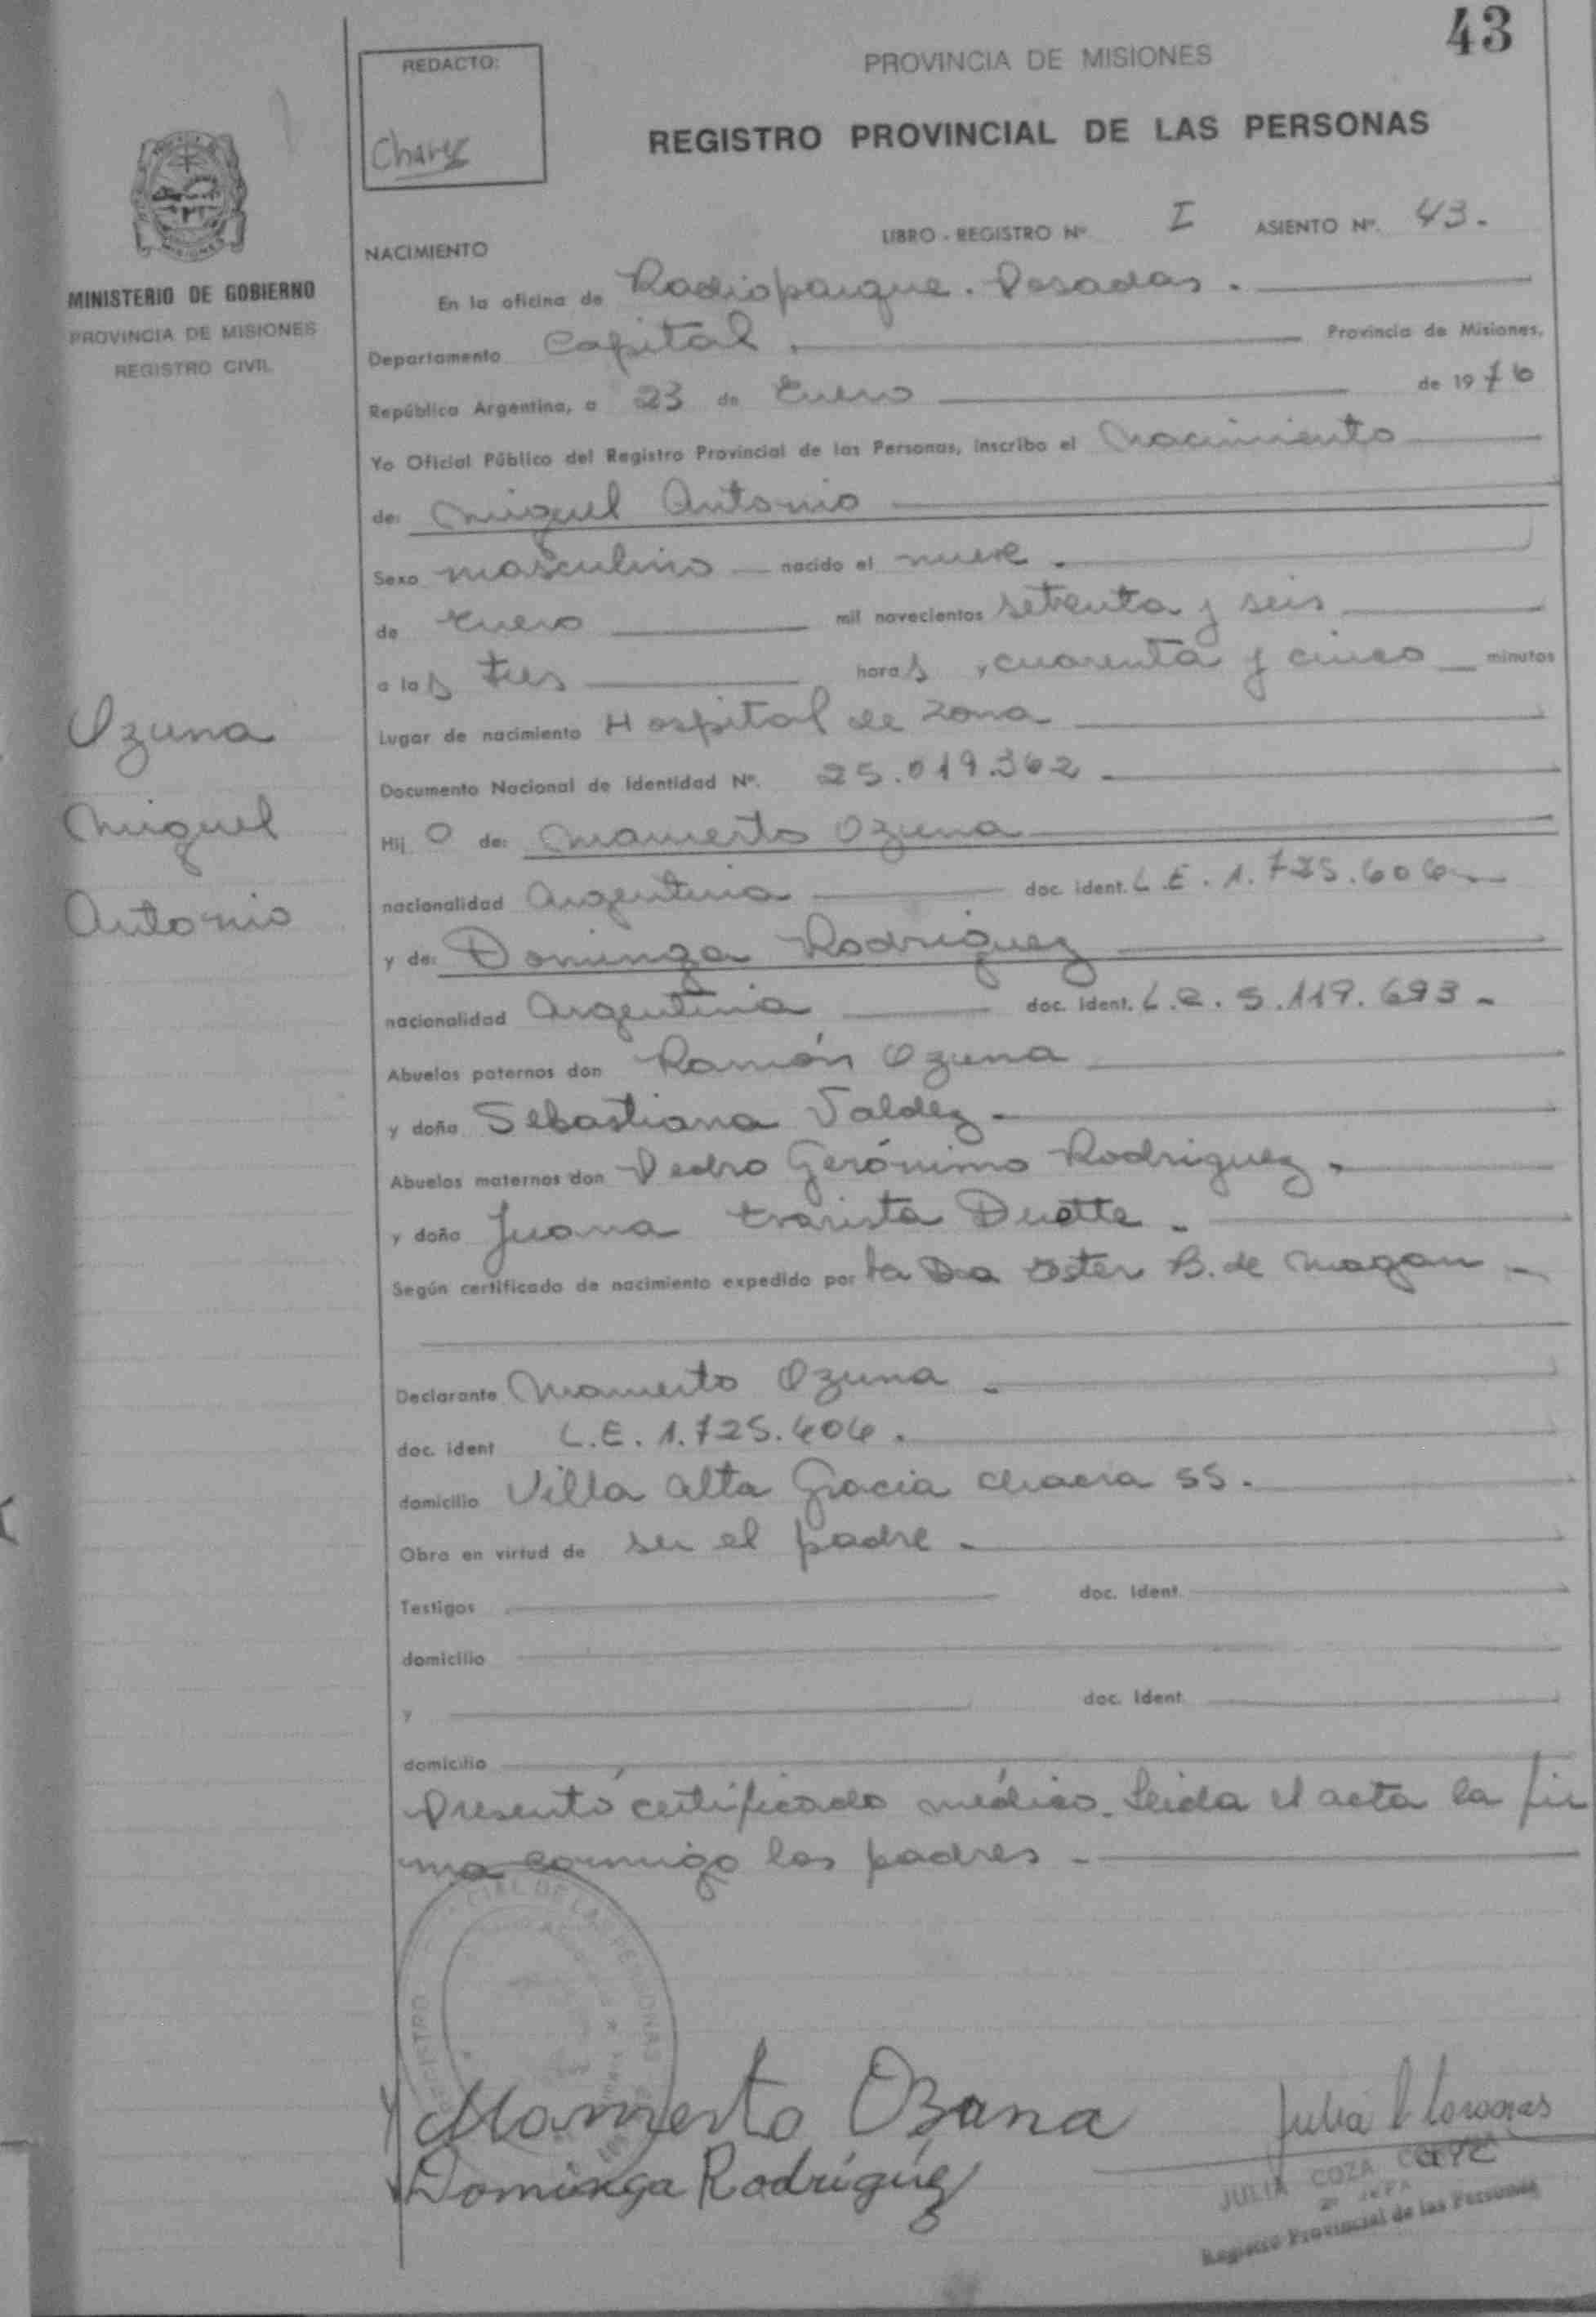 43
REDACTO:
PROVINCIA DE MISIONES
REGISTRO PROVINCIAL DE LAS PERSONAS
LIBRO - REGISTRO Nº I ASIENTO Nº. 43.
NACIMIENTO
MINISTERIO DE GOBIERNO
PROVINCIA DE MISIONES
REGISTRO CIVIL
En la oficina de Radioparque. Posadas.
Departamento Capital. Provincia de Misiones,
República Argentina, a 23 de Enero de 1976
Yo Oficial Público del Registro Provincial de las Personas, inscribo el Nacimiento
de: Miguel Antonio
Sexo masculino nacido el nueve.
de Enero mil novecientos setenta y seis
a las tres horas y cuarenta y cinco minutos
Lugar de nacimiento Hospital de zona
Documento Nacional de Identidad Nº. 25.019.362
Ozuna
Miguel
Antonio
Hijo de: Mamerto Ozuna
nacionalidad Argentina doc. ident. L.E. 1.725.606
y de: Dominga Rodriguez
nacionalidad Argentina doc. ident. L.C. 5.119.693
Abuelos paternos don Ramón Ozuna
y doña Sebastiana Valdez
Abuelos maternos don Pedro Gerónimo Rodriguez
y doña Juana Evarista Duette
Según certificado de nacimiento expedido por la Dra Ester B. de Magan
Declarante Mamerto Ozuna
doc. ident L.E. 1.725.606.
domicilio Villa alta Gracia chacra 55.
Obra en virtud de ser el padre
Testigos doc. ident.
domicilio
y doc. ident.
domicilio
Presentó certificado médico. Leida el acta la fir
ma conmigo los padres
Mamerto Ozuna
Dominga Rodríguez
JULIA COZA
Registro Provincial de las Personas